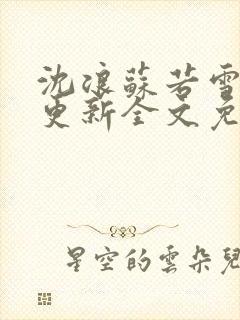 沈浪蘇若雪
更新全文免
星空的雲朵兒